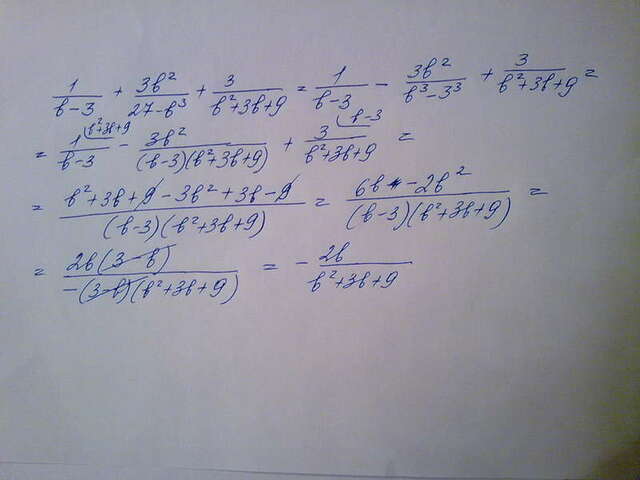 1/(b-3) + 3b²/(27-b³) + 3/(b²+3b+9) = 1/(b-3) - 3b²/(b³-3³) + 3/(b²+3b+9) =
= 1(b²+3b+9/(b-3) - 3b²/((b-3)(b²+3b+9)) + 3(b-3/(b²+3b+9) =
= (b²+3b+9-3b²+3b-9)/((b-3)(b²+3b+9)) = (6b-2b²)/((b-3)(b²+3b+9)) =
= 2b(3-b)/(-(3-b)(b²+3b+9)) = - 2b/(b²+3b+9)